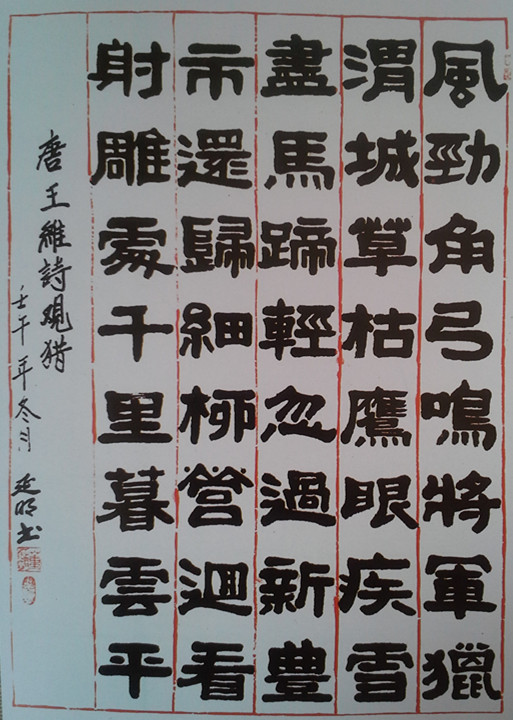 風勁角弓鳴將軍獵
渭城草枯鷹眼疾雪
盡馬蹄輕忽過新豊
市還歸細柳營迴看
射雕處千里暮雲平
唐王維詩覌猎
壬午年冬月 延明书